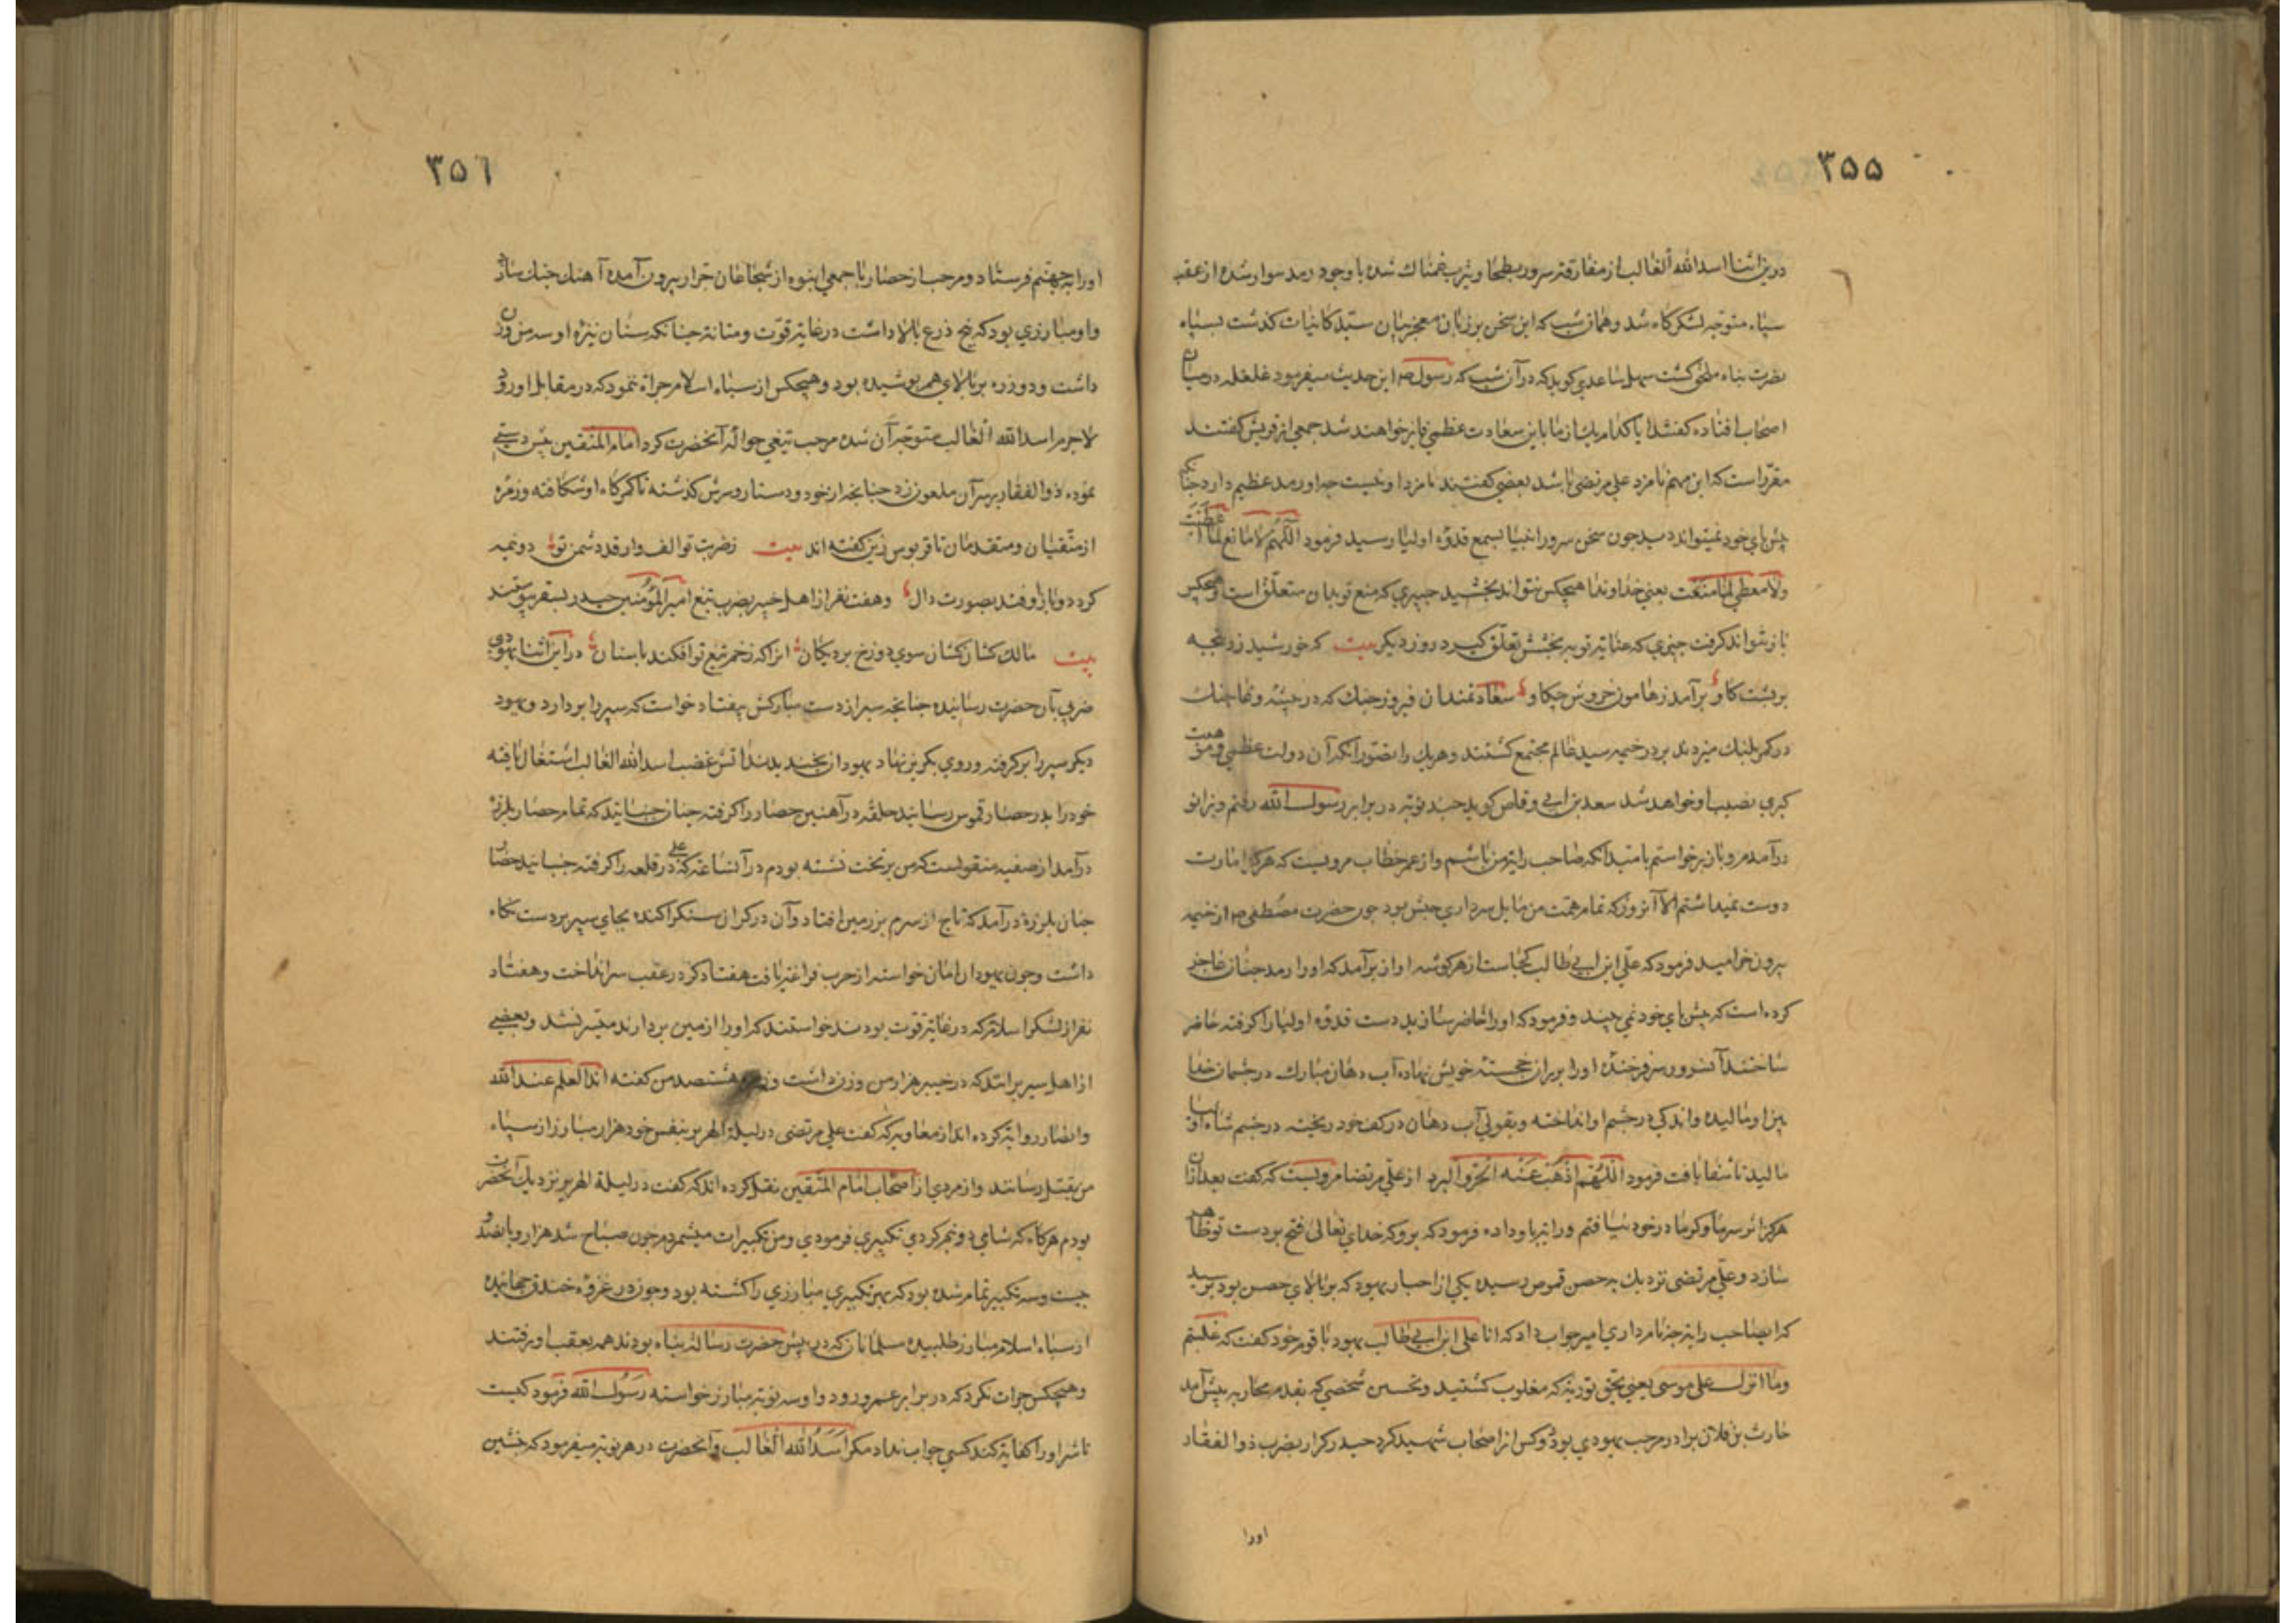 ۳۵۵
درین اثنا اسد الله الغالب از مفارقت سرور بطحا و یثرب غمناک شده با وجود رمد سوار شده از عقب
سپاه متوجه لشکرکاه شد و همان شب که این سخن بر زبان معجز بیان سید کاینات کذشت بسپاه
نصرت پناه ملحق کشت سهل ساعدی کوید که در آن شب که رسول ص این حدیث میفرمود غلغله در میان
اصحاب افتاده کفتند ایا کدام یک از ما باین سعادت عظمی فایز خواهند شد جمعی از قریش کفتند
مقرر است که این مهم نامزد علی مرتضی باشد بعضی کفتند نامزد او نیست چه او رمد عظیم دارد چنانکه
پیش پای خود نمیتواند دید جون سخن سرور انبیا بسمع قدوه اولیا رسید فرمود اللهم لا مانع لما اعطیت
ولا معطی لما منعت یعنی خداوندا هیچکس نتواند بخشید چیزی که منع تو بدان متعلق است و هیچکس
باز نتواند کرفت چیزی که عنایت تو به بخشش تعلق کیرد روز دیکر بیت که خورشید زد پنجه
بر پشت کاو برآمد ز هامون خروش چکاو سعادتمندان فیروز جنک که در بیشه وغا چنک
در کمر پلنک میزدند بر در خیمه سید عالم مجتمع کشتند و هر یک را تصور آنکه آن دولت عظمی و موهبت
کبری نصیب او خواهد شد سعد بن ابی وقاص کوید چند نوبت در برابر رسول الله رفتم و بزانو
درآمدم و باز برخواستم بامید آنکه صاحب رایت من باشم و از عمر خطاب مرویست که هرکز امارت
دوست نمیداشتم الا آنروز که تمام همت من مایل سرداری جیش بود جون حضرت مصطفی ص از خیمه
بیرون خرامید فرمود که علی ابن ابی طالب کجاست از هر کوشه اواز برآمد که او را رمد چنان عاجز
کرده است که پیش پای خود نمی بیند و فرمود که او را حاضر سازید دست قدوه اولیا را کرفته حاضر
ساختند آنسرور سر فرخنده او را بر ران خجسته خویش نهاده آب دهان مبارک در چشمان خدا
بین او مالیده و اندکی در چشم او انداخته و بقولی آب دهان در کف خود ریخته در چشم شاه اولیا
مالید تا شفا یافت فرمود اللهم اذهب عنه الحر والبرد از علی مرتضا مرویست که کفت بعد از ان
هرکز اثر سرما و کرما در خود نیافتم و رایت باو داده فرمود که برو که خدای تعالی فتح بر دست تو ظاهر
سازد و علی مرتضی نزدیک به حصن قموص رسیده یکی از احبار یهود که بر بالای حصن بود پرسید
که ایصاحب رایت چه نام داری امیر جواب داد که انا علی ابن ابی طالب یهود با قوم خود کفت که غلبتم
وما انزل علی موسی یعنی بحق توریة که مغلوب کشتید و نخستین شخصی که بقدم محاربه پیش آمد
حارث بن فلان برادر مرحب یهودی بود دو کس از اصحاب شهید کرد حیدر کرار بضرب ذوالفقار
اورا
۳۵۶
او را بجهنم فرستاد و مرحب از حصار با جمعی انبوه از شجاعان جرار بیرون آمده آهنک جنک ساز
و او مبارزی بود که پنج ذرع بالا داشت در غایت قوت و متانت چنانکه سنان نیزه او سه من وزن
داشت و دو زره بر بالای هم پوشیده بود و هیچکس از سپاه اسلام جراة ننمود که در مقابل او رود
لاجرم اسد الله الغالب متوجه آن شده مرحب تیغی حواله آنحضرت کرد امام المتقین پیش دستی
نموده ذوالفقار بر سر آن ملعون زد چنانچه از خود و دستار و سرش کذشته تا کمرکاه او شکافته و زمره
از متقیان و متقدمان تا قربوس زین کفته اند بیت ز ضرب تو الف وار قد دشمن تو دو نیمه
کردد و باز اوفتد بصورت دال و هفت نفر از اهل خیبر بضرب تیغ امیر المؤمنین حیدر بسقر پیوستند
بیت مالک کشان کشان سوی دوزخ برد یکان آنرا که زخم تیغ تو افکند یا سنان در این اثنا یهودی
ضربی بآن حضرت رسانیده چنانچه سپر از دست مبارکش بیفتاد خواست که سپر را بردارد و یهود
دیکر سپر را برکرفته و روی بکریز نهاد یهودان بخندیدند آتش غضب اسد الله الغالب اشتعال یافته
خود را بدر حصار قموس رسانید حلقه در آهنین حصار را کرفته چنان جنبانید که تمام حصار بلرزه
درآمد از صفیه منقولست که من بر تخت نشسته بودم در آنساعت که علی در قلعه را کرفته جنبانید حصار
چنان بلرزه درآمد که تاج از سرم بزمین افتاد و آن در کران سنک را کنده بجای سپر بر دست نکاه
داشت و جون یهودان امان خواستند از حرب فراغت یافت هفتاد کز در عقب سر انداخت و هفتاد
نفر از لشکر اسلام که در غایت قوت بودند خواستند که او را از زمین بردارند میسر نشد و بعضی
از اهل سیر برانند که در خیبر هزار من وزن داشت و هشتصد من کفته اند العلم عند الله
و انصار روایت کرده اند از معاویه که کفت علی مرتضی در لیلة الهریر بنفس خود هزار مبارز از سپاه
من بقتل رسانند و از مردی از اصحاب امام المتقین نقل کرده اند که کفت در لیلة الهریر نزدیک آنحضرت
بودم هرکاه که شامی دو نیم کردی تکبیری فرمودی و من تکبیرات میشمردم جون صباح شد هزار و پانصد و
بیست و سه تکبیر تمام شده بود که بهر تکبیری مبارزی را کشته بود و جون در غزوه خندق جهانیده
از سپاه اسلام مبارز طلبیده مسلمانان که در پیش حضرت رسالت پناه بودند همه بعقب او رفتند
و هیچکس جرات نکرد که در برابر عمرو رود و او سه نوبت مبارز خواسته رسول الله فرمود کیست
تا شر او را کفایت کند کسی جواب نداد مکر اسد الله الغالب و آنحضرت در هر نوبت میفرمود که بنشین